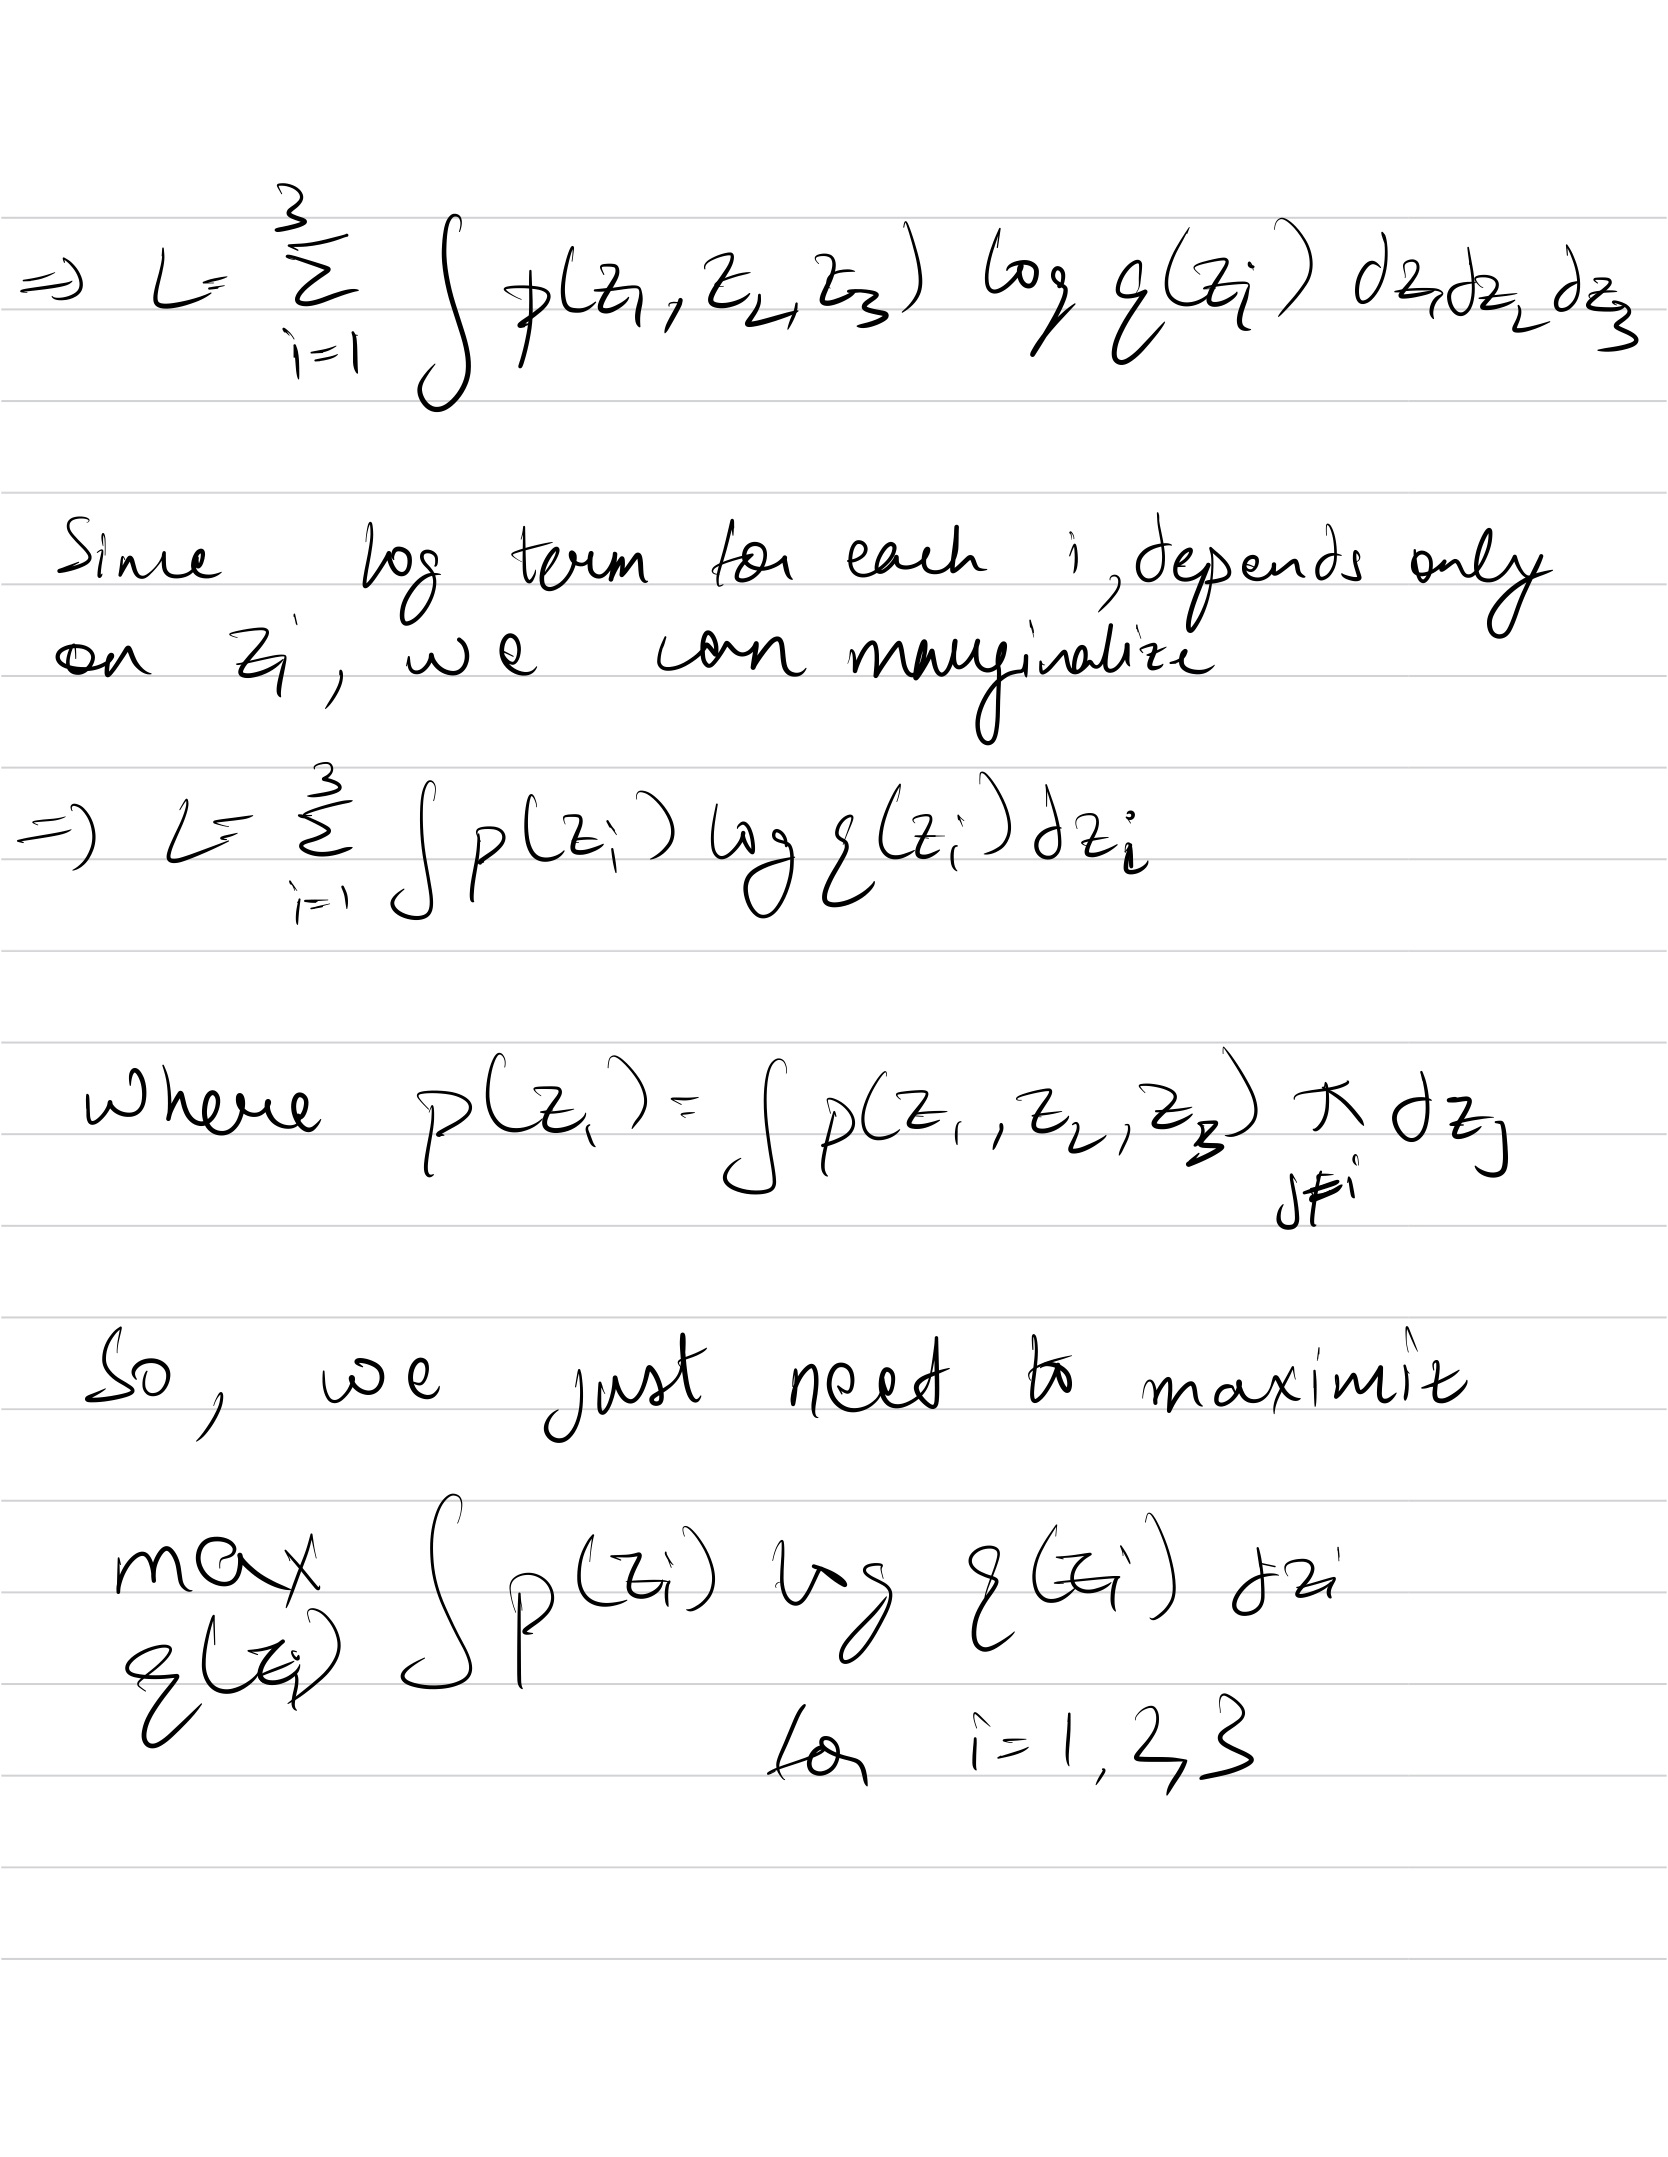 ⇒ L = ∑_{i=1}^{3} ∫ p(z₁, z₂, z₃) log q(zᵢ) dz₁dz₂dz₃
Since log term for each i, depends only
on zᵢ, we can marginalize
⇒ L = ∑_{i=1}^{3} ∫ p(zᵢ) log q(zᵢ) dzᵢ
where p(zᵢ) = ∫ p(z₁, z₂, z₃) π_{j≠i} dzⱼ
So, we just need to maximize
max_{q(zᵢ)} ∫ p(zᵢ) log q(zᵢ) dzᵢ
for i=1,2,3